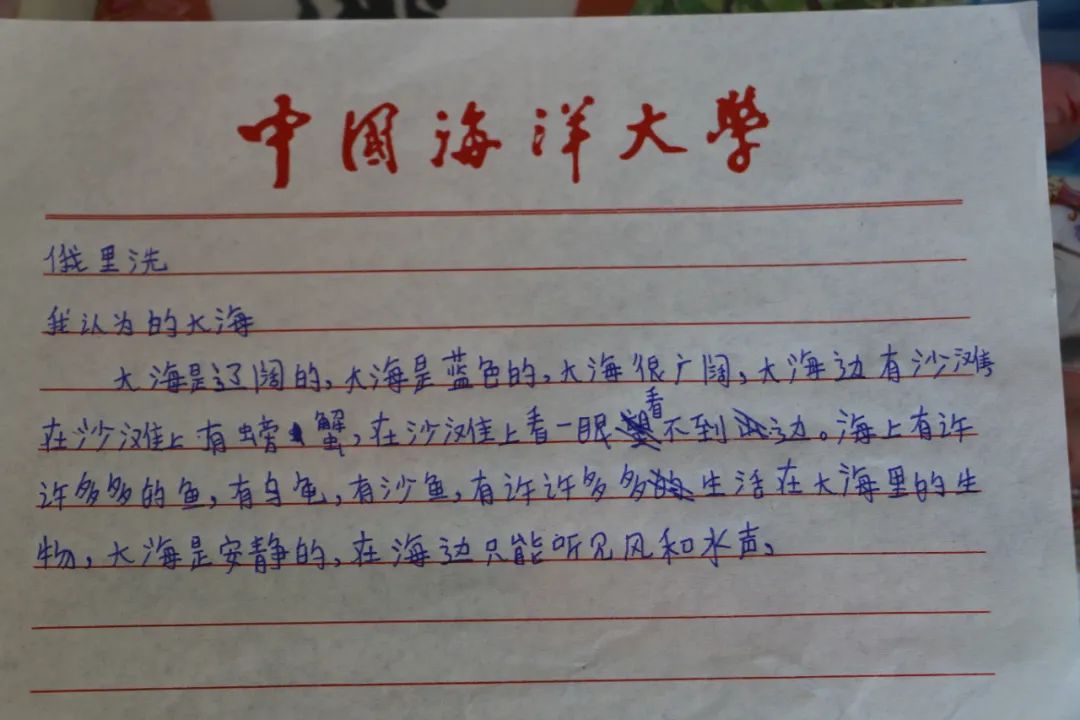 中國海洋大學
俄里洗
我认为的大海
大海是辽阔的,大海是蓝色的,大海很广阔,大海边有沙滩
在沙滩上有螃蟹,在沙滩上看一眼看不到边。海上有许
许多多的鱼,有乌龟,有沙鱼,有许许多多生活在大海里的生
物,大海是安静的,在海边只能听见风和水声,